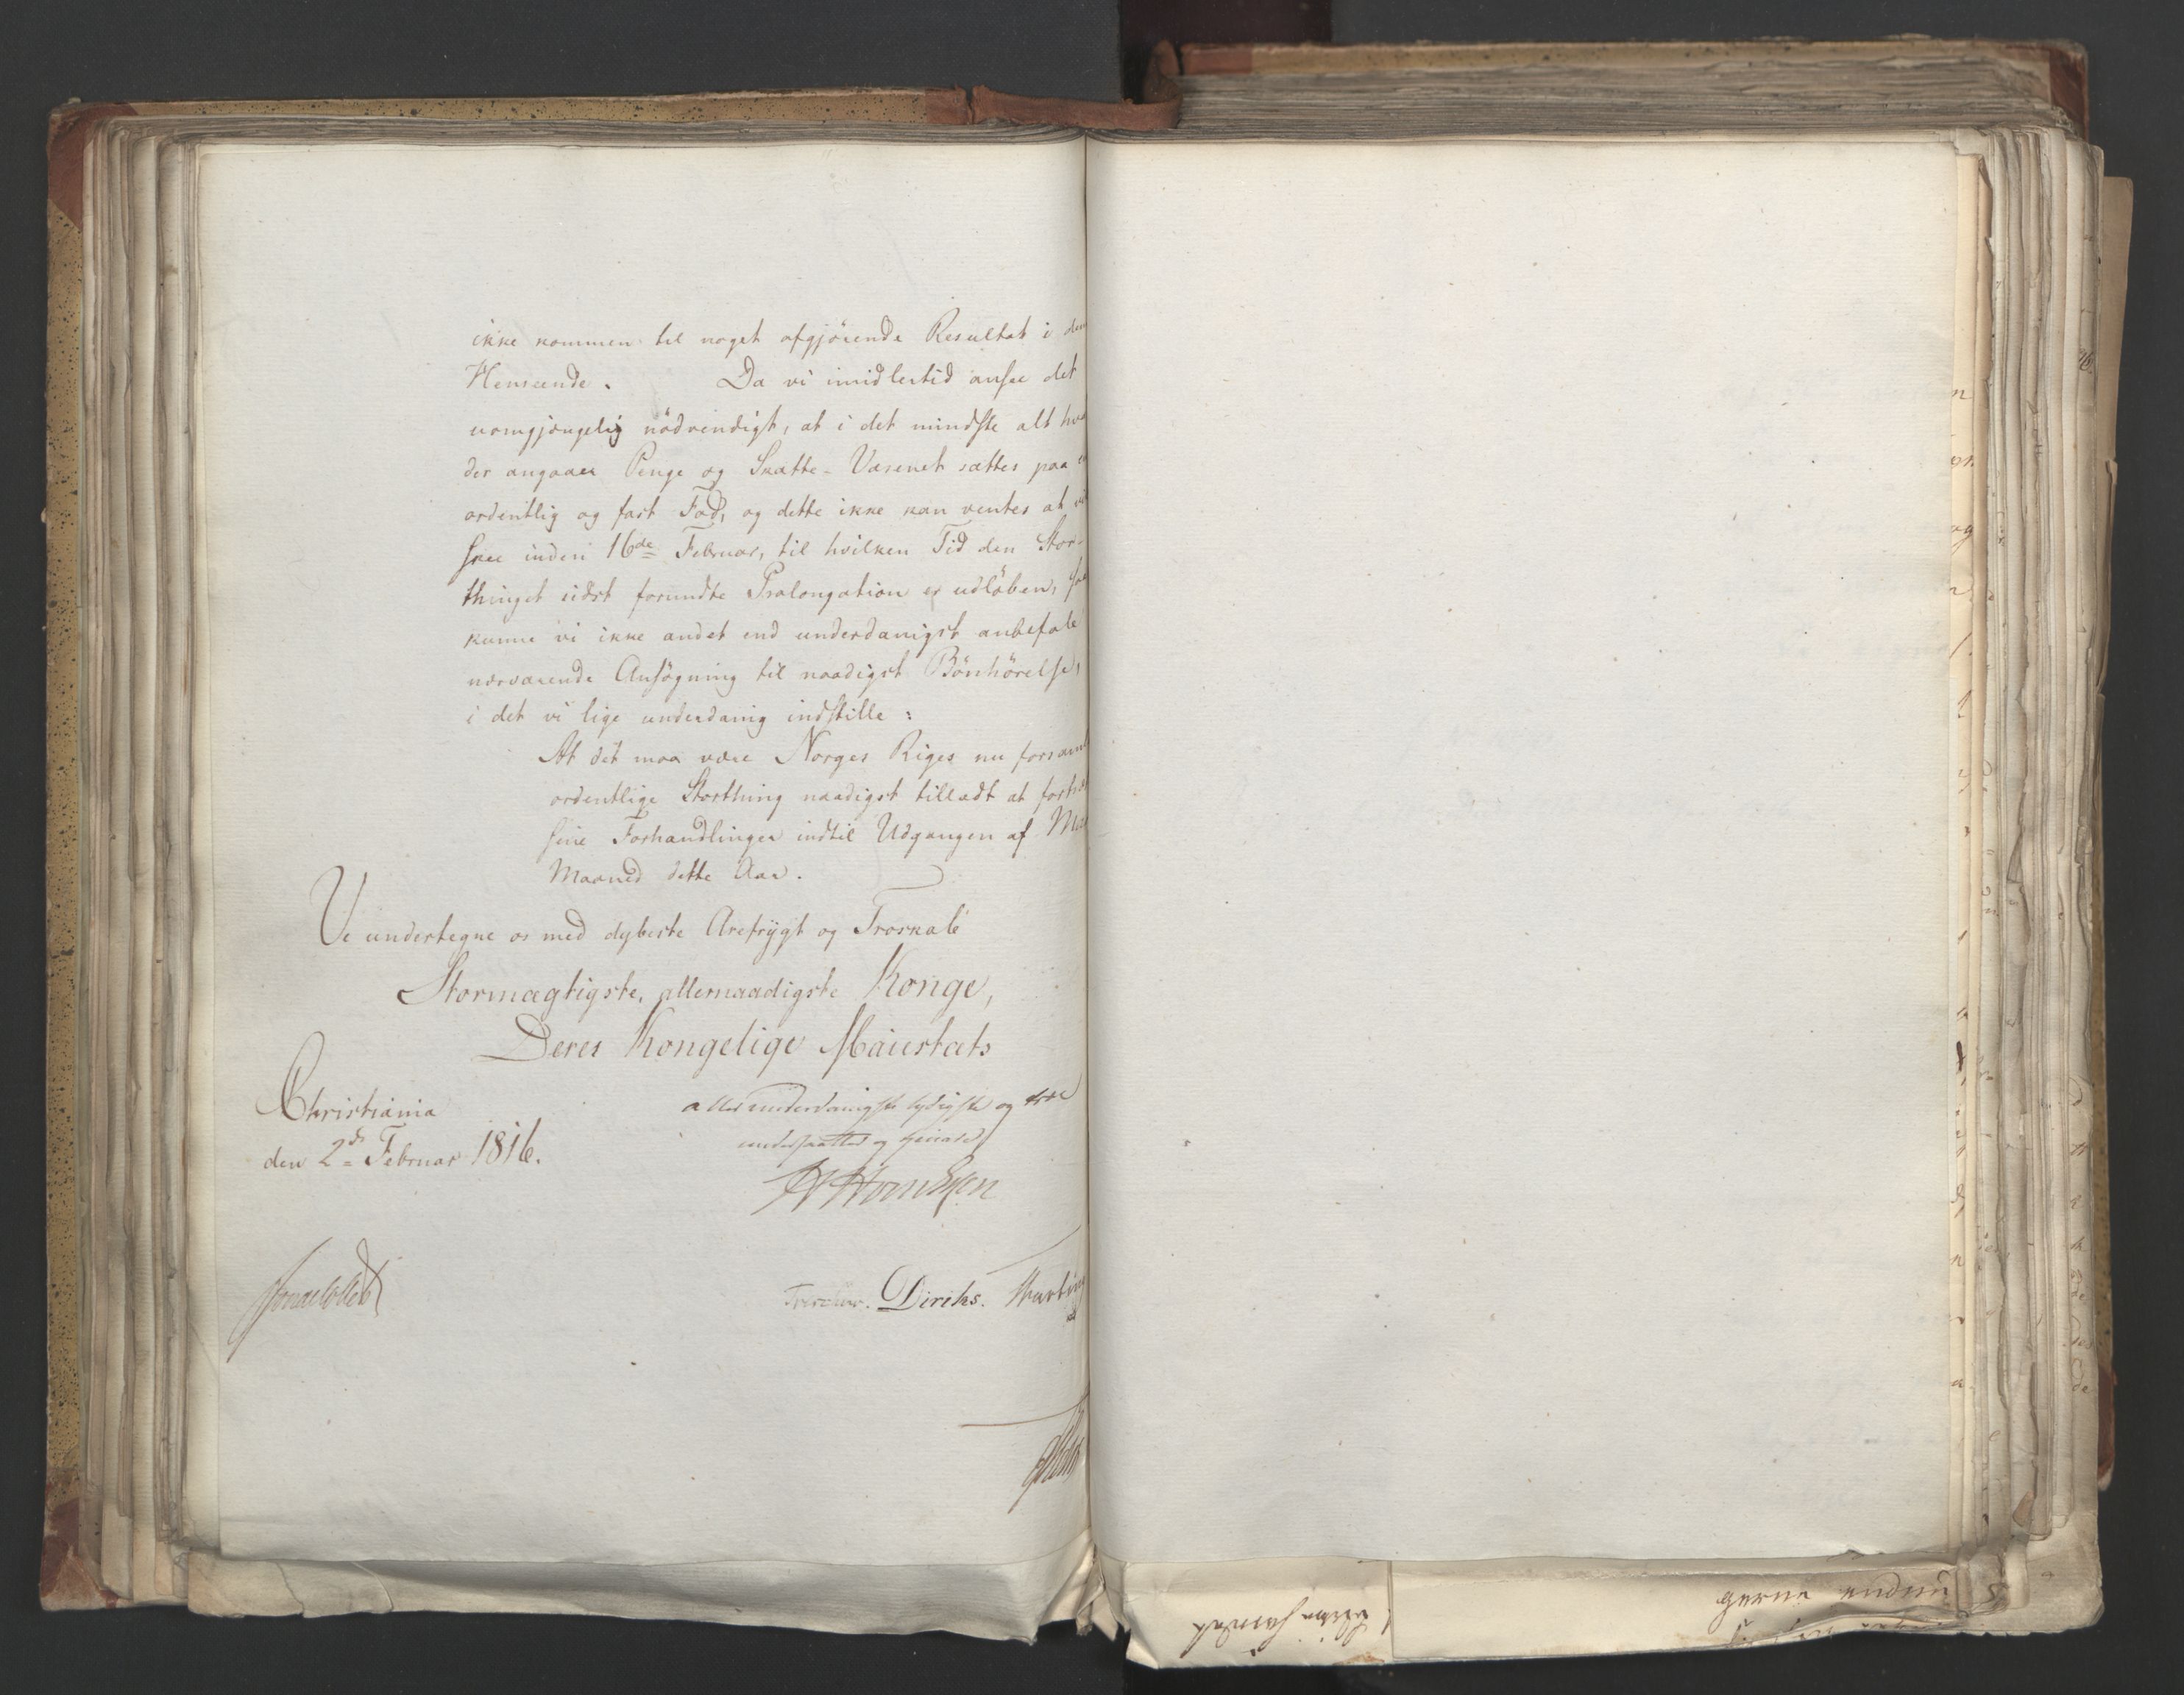 ikke kommen til noget afgjörende Resultat i den
Henseende. Da vi imidlertid ansee det
uomgjængelig nödvendigt, at i det mindste alt hva
der angaaer Penge og Skatte-Væsenet sættes paa
ordentlig og fast Fod, og dette ikke kan ventes at
skee inden 16de Februar, til hvilken Tid den Stor-
thinget sidst forundte Prolongation er udlöben, saa
kunne vi ikke andet end underdanigst anbefale
nærværende Ansögning til naadigst Bönhörelse,
i det vi lige underdanig indstille:
At det maa være Norges Riges nu forsaml
ordentlige Storthing naadigst tilladt at fortsæ
sine Forhandlinger indtil Udgangen af
Maaned dette Aar.
Vi undertegne os med dybeste Ærefrygt og Troskab
Stormægtigste, allernaadigste Konge,
Deres Kongelige Maiestæts
Christiania
den 2de Februar 1816.
allerunderdanigste lydigste og troe
undersaatter og tienere
Treschow. Diriks.
gerne endnu